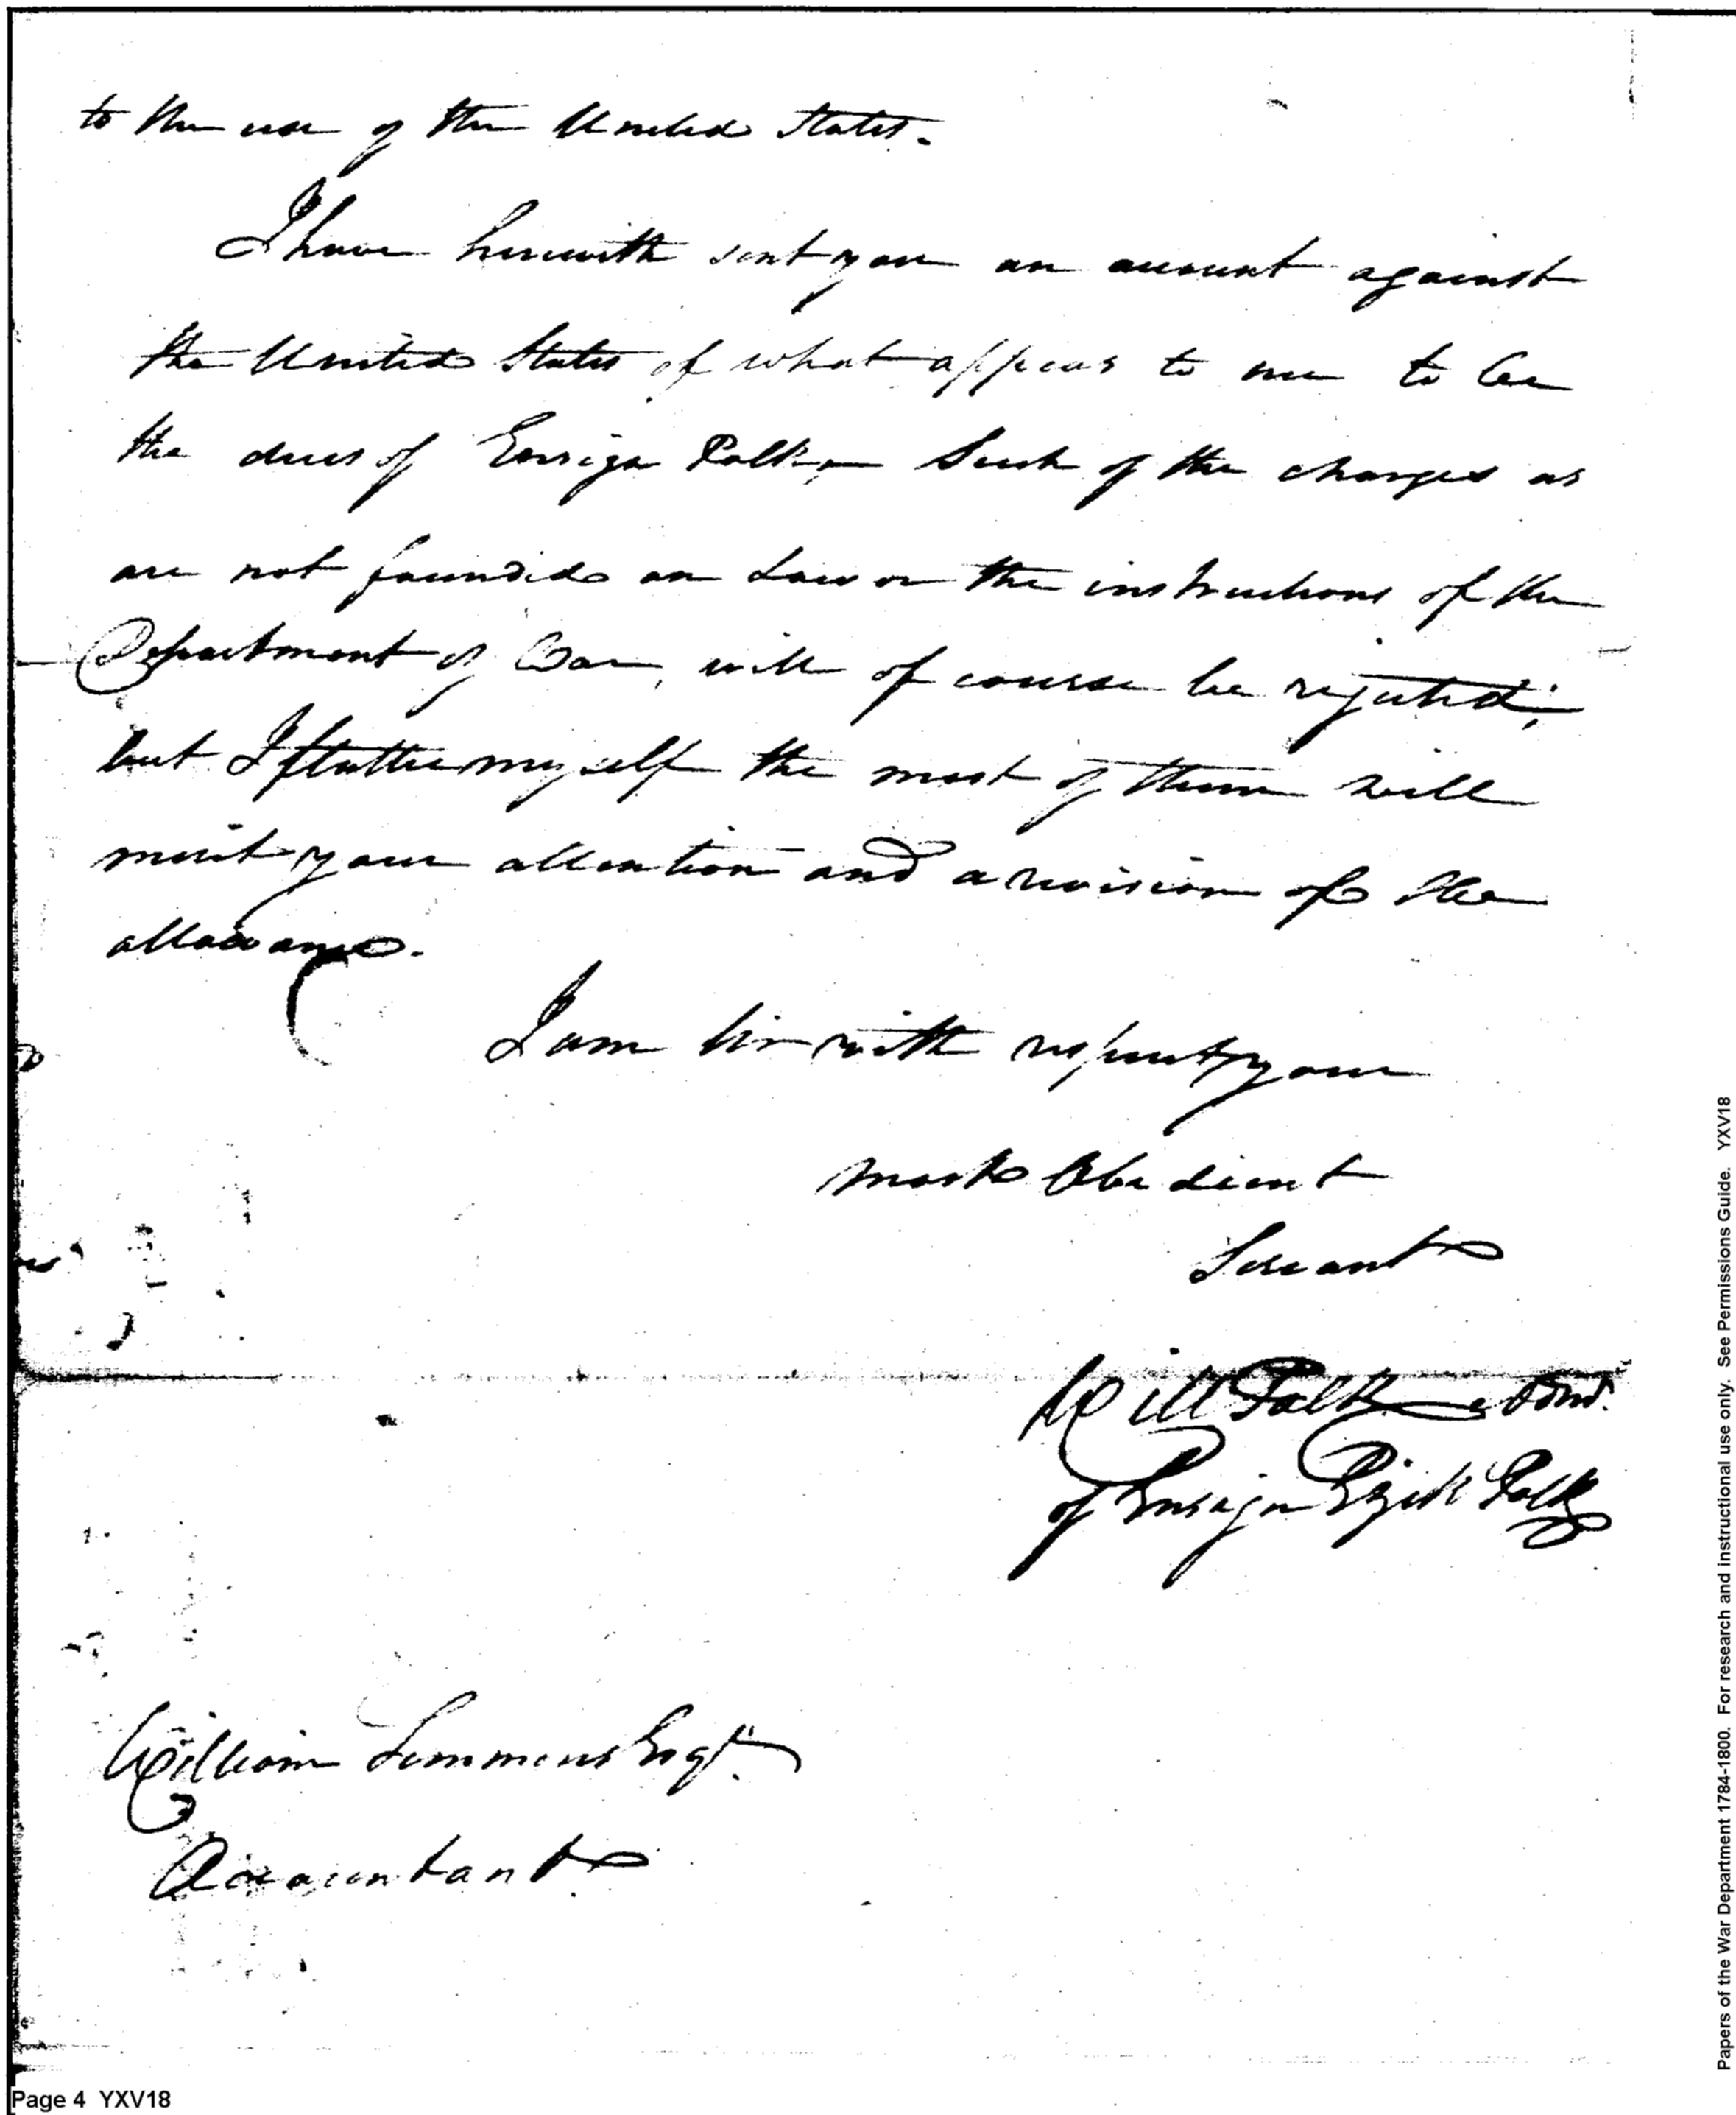 to the use of the United States.
I have herewith sent you an account against
the United States of what appears to me to be
the dues of Ensign Polk, Such of the charges as
are not founded on Law or the instructions of the
Department of War, will of course be rejected;
but I flatter myself the most of them will
merit your attention and a revision of the
allowance.
I am Sir with respect your
most Obedient
Servant
Will Polk Adm.
of Ensign Ezek Polk
William Simmons Esqr.
Accountant
Page 4 YXV18
Papers of the War Department 1784-1800. For research and instructional use only. See Permissions Guide. YXV18